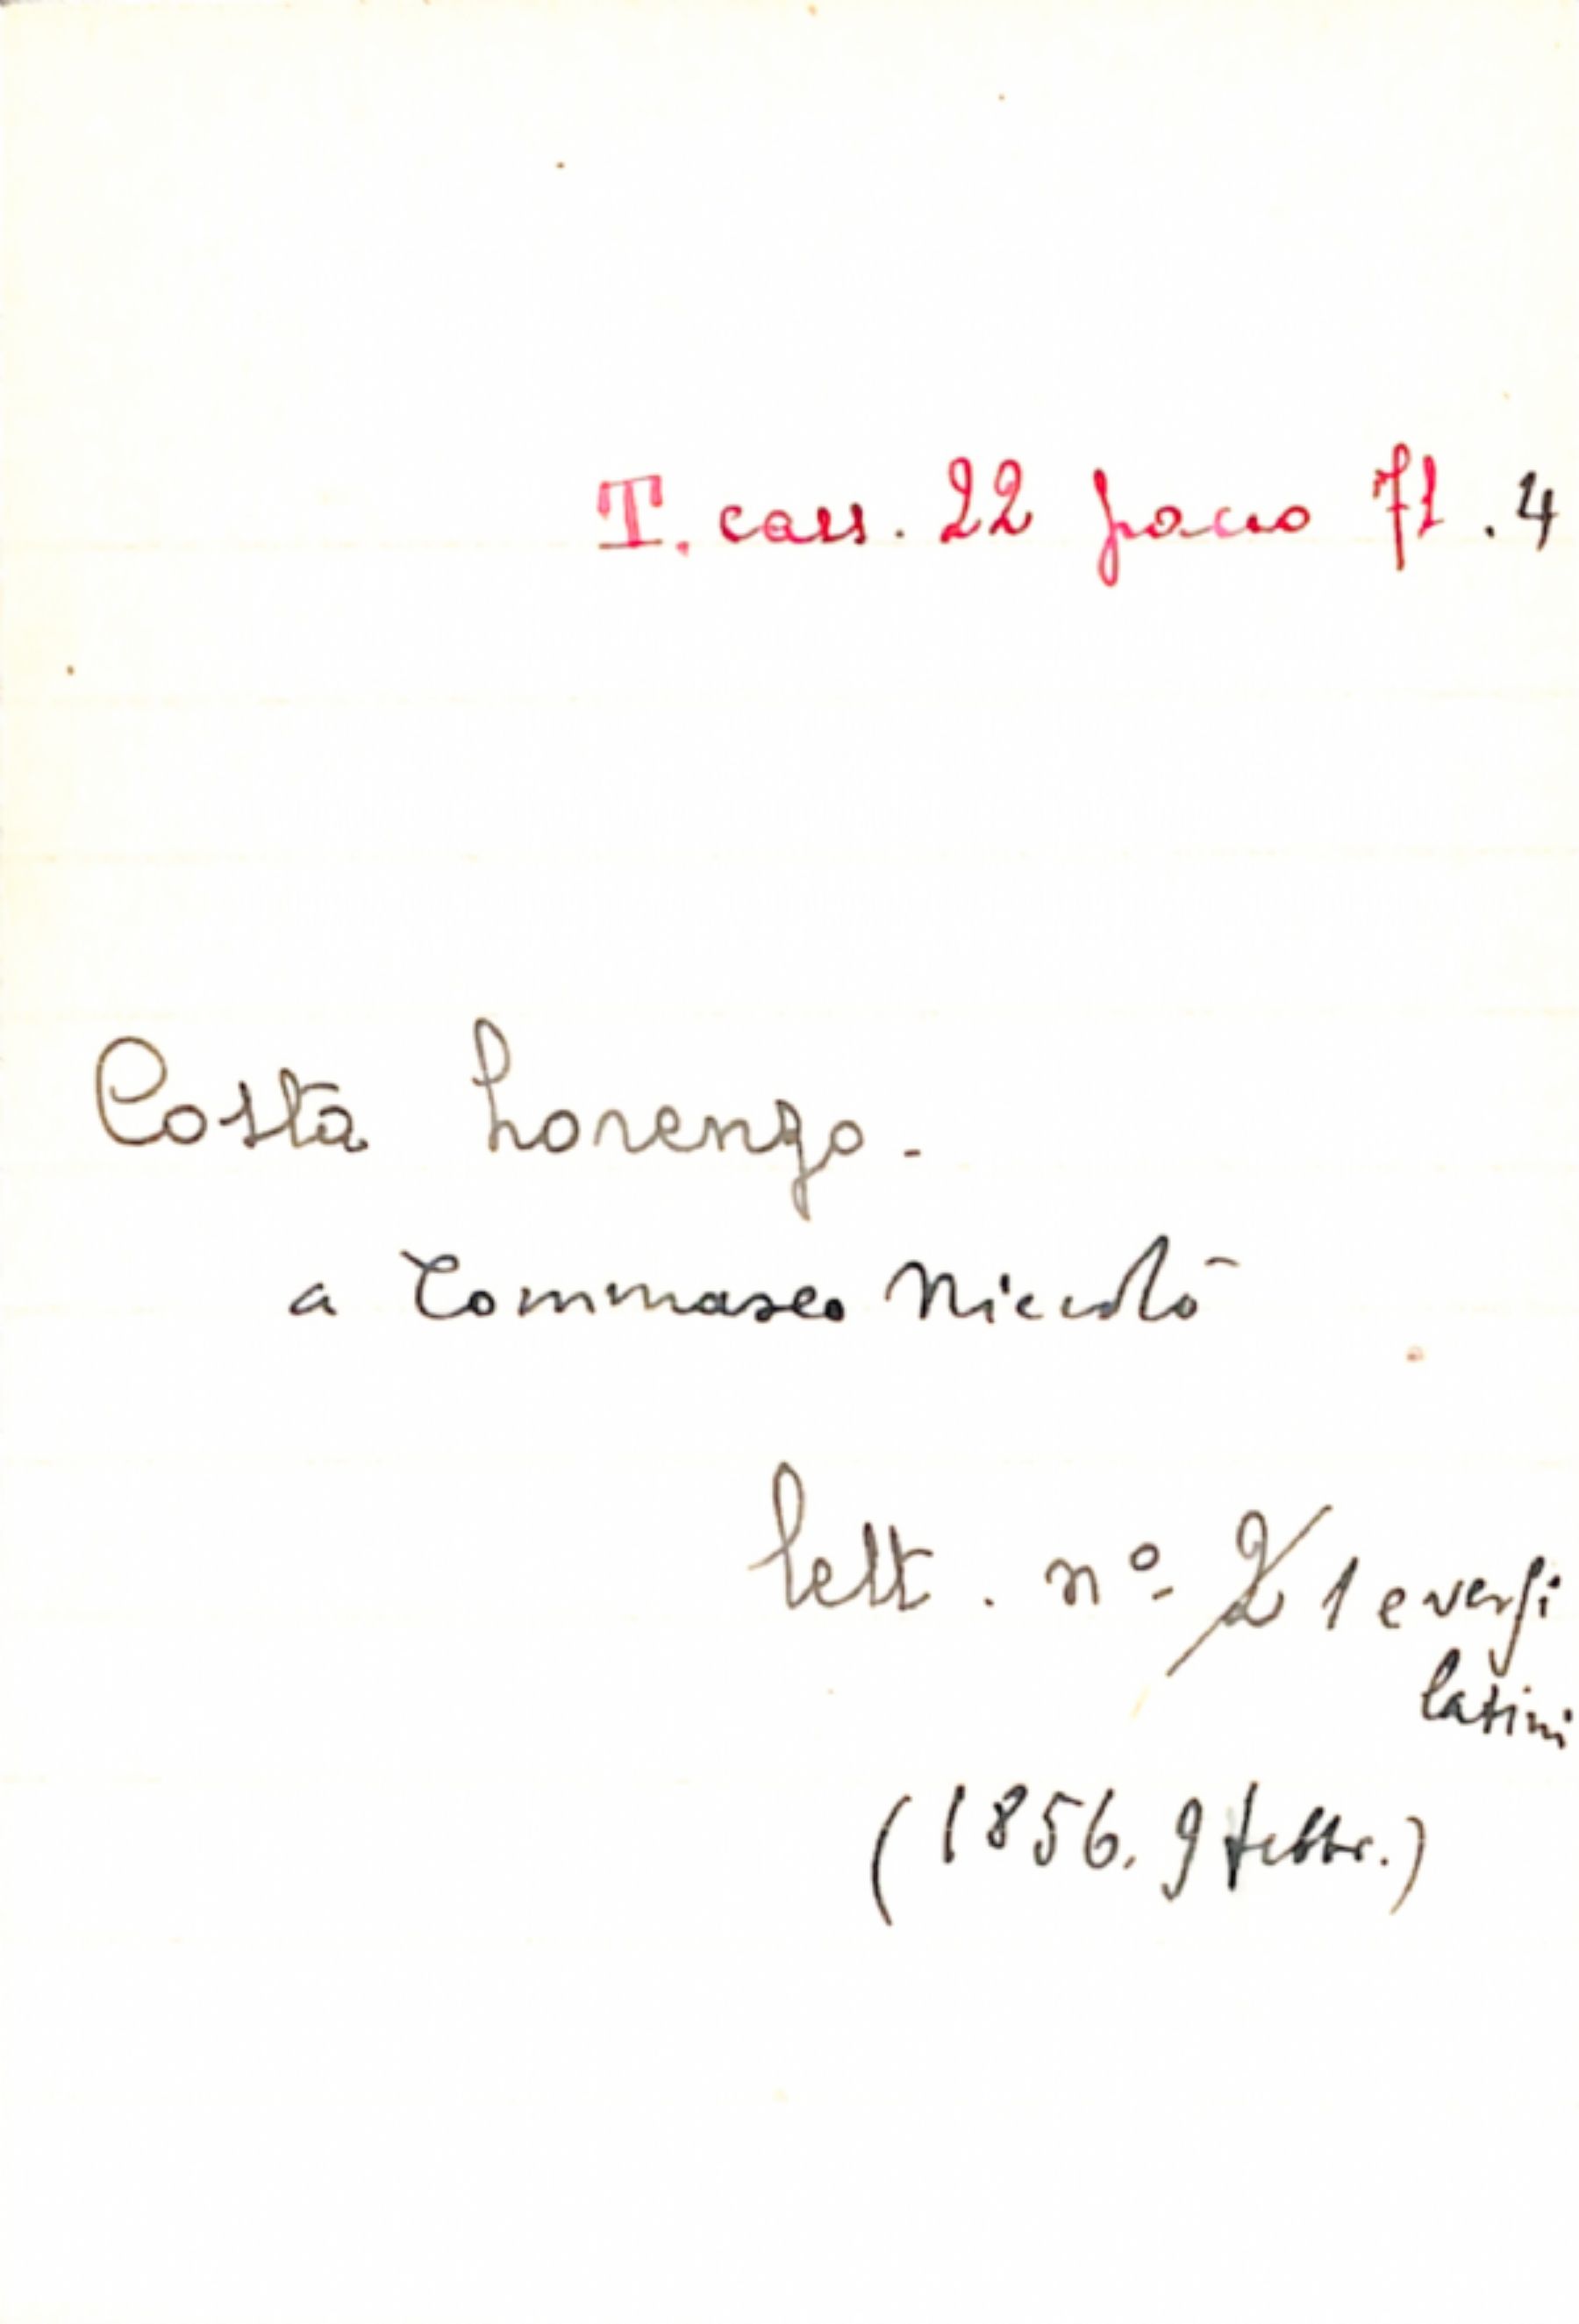 T. cass. 22 pacco 71.4
Costa Lorenzo.
a Tommaseo Niccolò
lett. nº 2 1 e versi
latini
(1856. 9 febbr.)